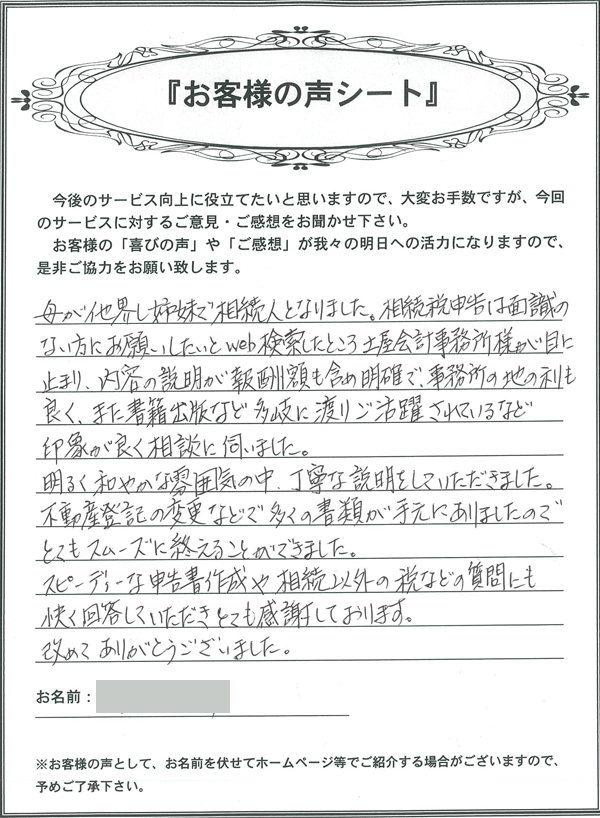 『お客様の声シート』
今後のサービス向上に役立てたいと思いますので、大変お手数ですが、今回
のサービスに対するご意見・ご感想をお聞かせ下さい。
お客様の「喜びの声」や「ご感想」が我々の明日への活力になりますので、
是非ご協力をお願い致します。
母が他界し姉妹で相続人となりました。相続税申告は面識の
ない方にお願いしたいとweb検索したところ土屋会計事務所様が目に
止まり、内容の説明が報酬額も含め明確で、事務所の地の利も
良く、また書籍出版など多岐に渡りご活躍されているなど
印象が良く相談に伺いました。
明るく和やかな雰囲気の中、丁寧な説明をしていただきました。
不動産登記の変更などで多くの書類が手元にありましたので
とてもスムーズに終えることができました。
スピーディーな申告書作成や相続以外の税などの質問にも
快く回答していただきとても感謝しております。
改めてありがとうございました。
お名前：
※お客様の声として、お名前を伏せてホームページ等でご紹介する場合がございますので、
予めご了承下さい。